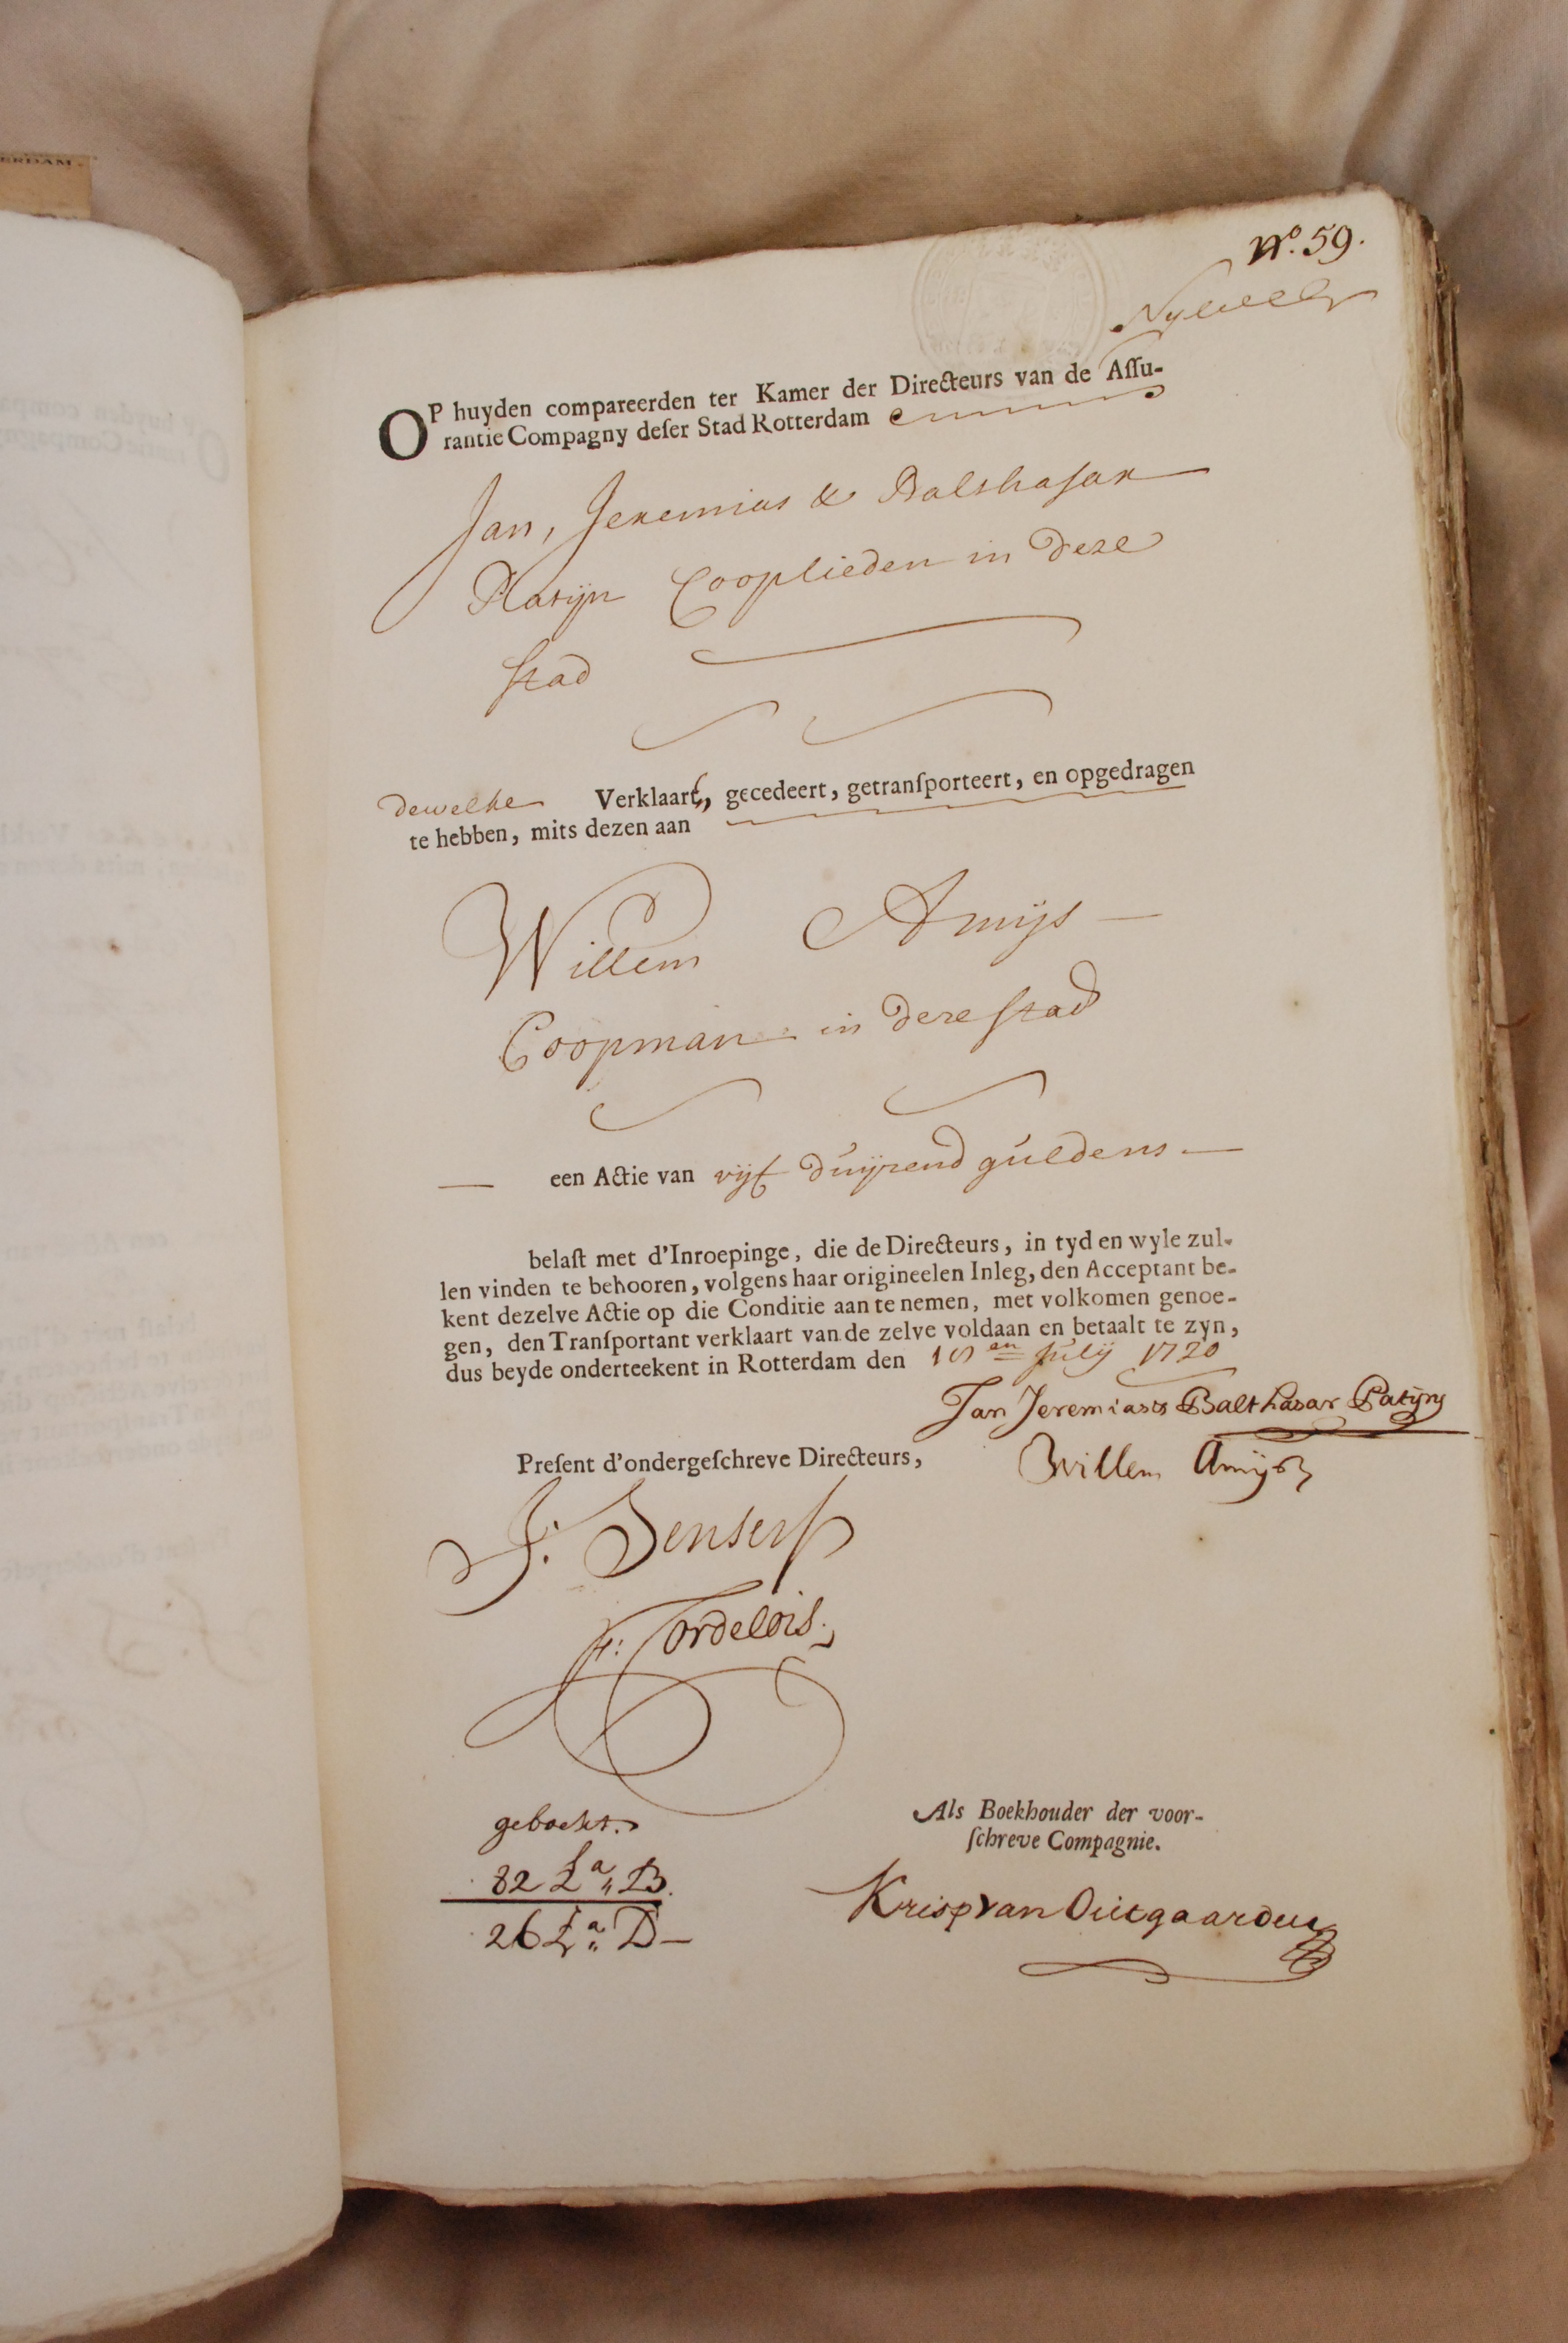 ERDAM
Nº. 59.
OP huyden compareerden ter Kamer der Directeurs van de Aſſu-
rantie Compagny deſer Stad Rotterdam
Jan, Jeremias & Balthasar
Patijn Cooplieden in deze
Stad
dewelke Verklaart, gecedeert, getranſporteert, en opgedragen
te hebben, mits dezen aan
Willem Amijs
Coopman in deze Stad
een Actie van vijf duijzend guldens
belaſt met d'Inroepinge, die de Directeurs, in tyd en wyle zul-
len vinden te behooren, volgens haar origineelen Inleg, den Acceptant be-
kent dezelve Actie op die Conditie aan te nemen, met volkomen genoe-
gen, den Tranſportant verklaart van de zelve voldaan en betaalt te zyn,
dus beyde onderteekent in Rotterdam den july 1720
Jan Jeremias & Balthasar Patijn
Willem Amijs
Preſent d'ondergeſchreve Directeurs,
geboekt.
82 La B.
26 La D
Als Boekhouder der voor-
ſchreve Compagnie.
Krisp van Outgaarden